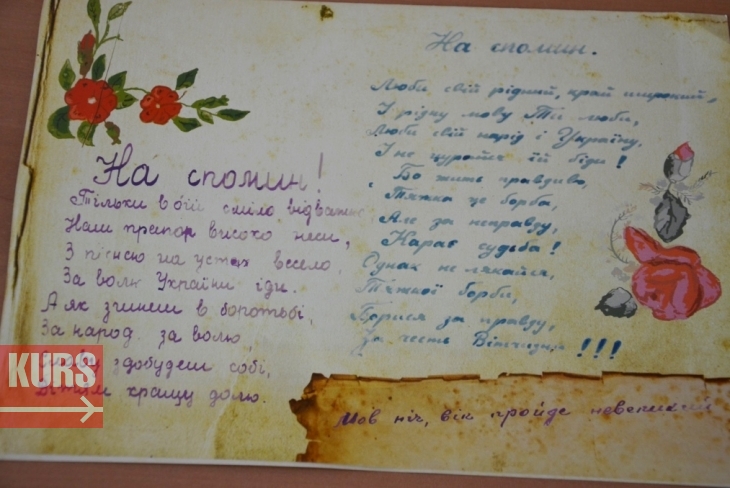 На спомин!
Тільки в бій сміло відважно
Наш прапор високо неси,
З піснею на устах весело,
За волю України іди.
А як згинеш в боротьбі,
За народ за волю,
здобудеш собі,
кращу долю.
На спомин.
Люби свій рідний край широкий,
І рідну мову Ти люби,
Люби свій нарід і Україну,
І не цурайсь їй біди!
Бо жить правдиво,
Тяжка це борба,
Але за неправду,
Карає судьба!
Однак не лякайся,
Тяжкої борби,
Борися за правду,
За честь Вітчизни!!!
Мов ніч, вік пройде невеликий
KURS